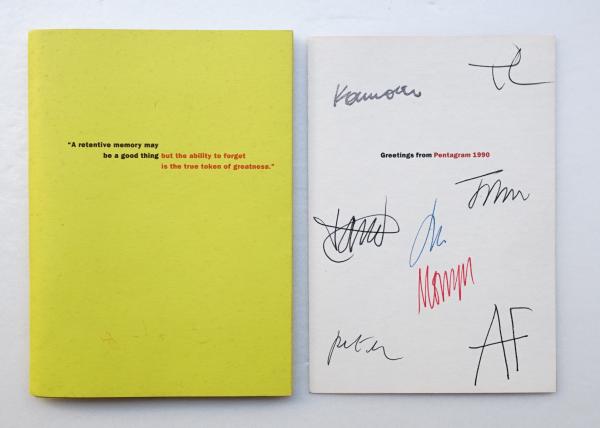 “A retentive memory may
be a good thing but the ability to forget
is the true token of greatness.”
Greetings from Pentagram 1990
John
Peter
AF